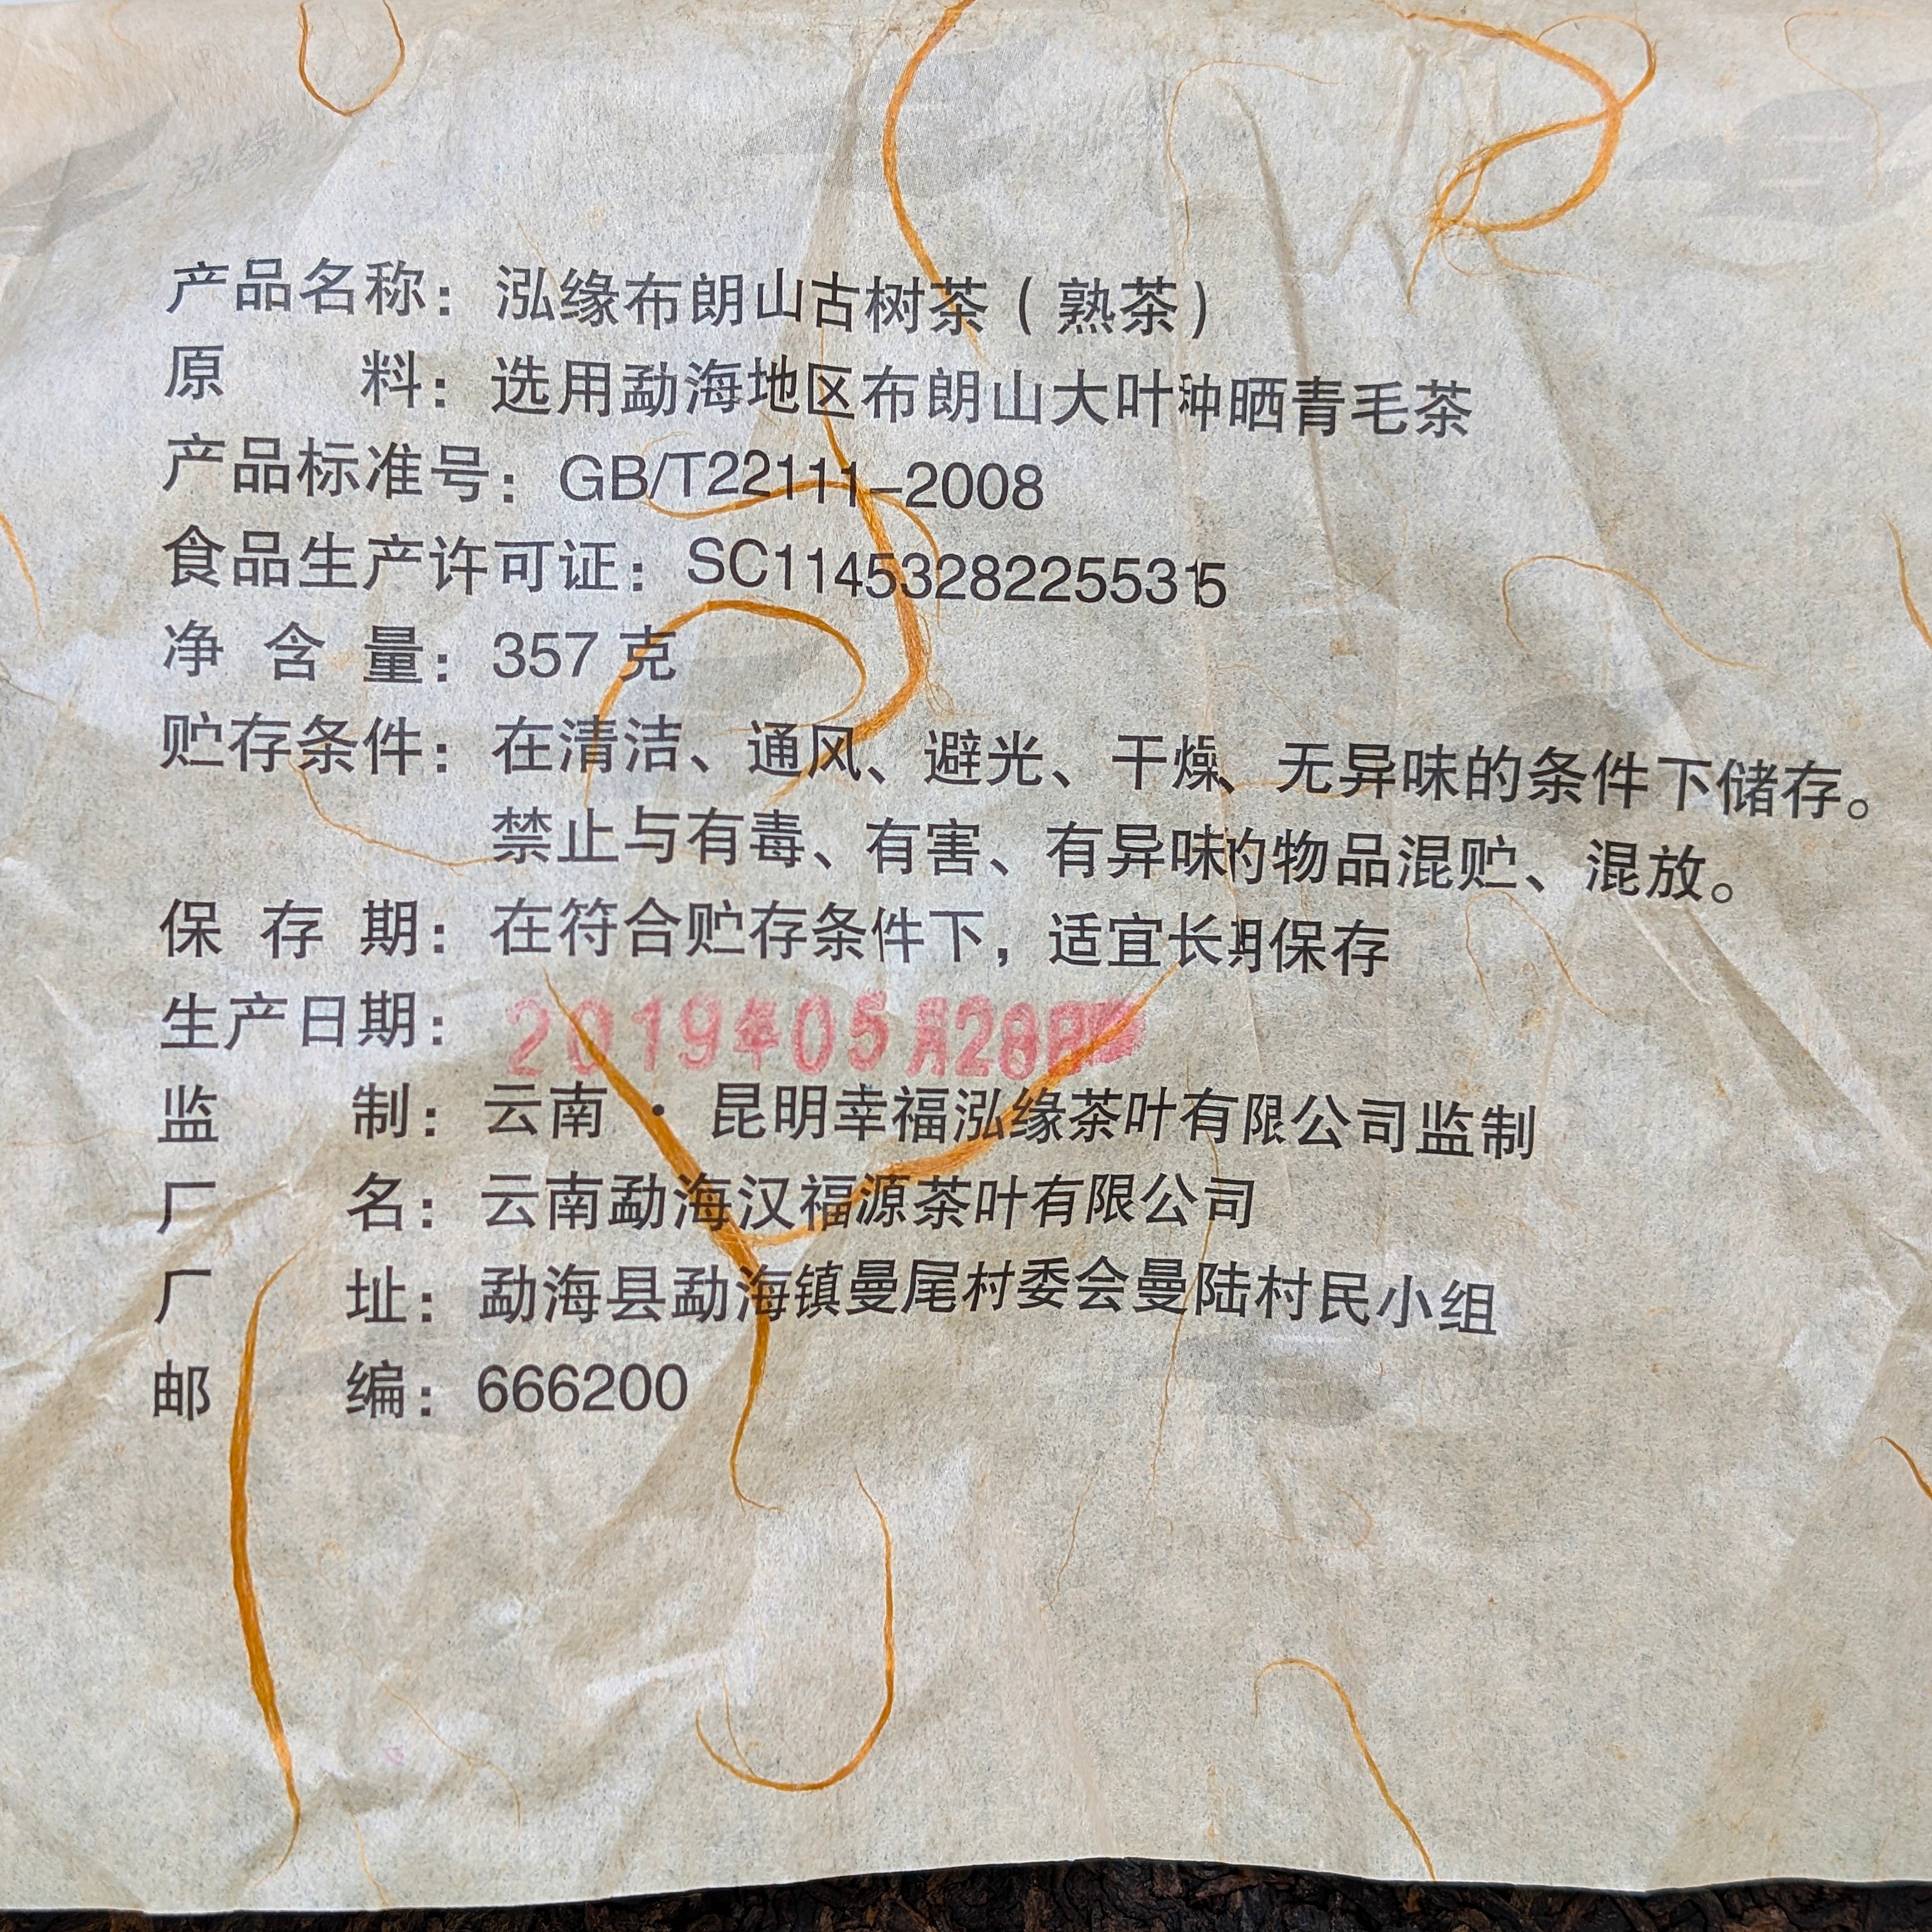 产品名称：泓缘布朗山古树茶（熟茶）
原 料：选用勐海地区布朗山大叶种晒青毛茶
产品标准号：GB/T22111-2008
食品生产许可证：SC11453282255315
净 含 量：357 克
贮存条件：在清洁、通风、避光、干燥、无异味的条件下储存。
禁止与有毒、有害、有异味的物品混贮、混放。
保 存 期：在符合贮存条件下，适宜长期保存
生产日期：2019年05月28日
监 制：云南·昆明幸福泓缘茶叶有限公司监制
厂 名：云南勐海汉福源茶叶有限公司
厂 址：勐海县勐海镇曼尾村委会曼陆村民小组
邮 编：666200